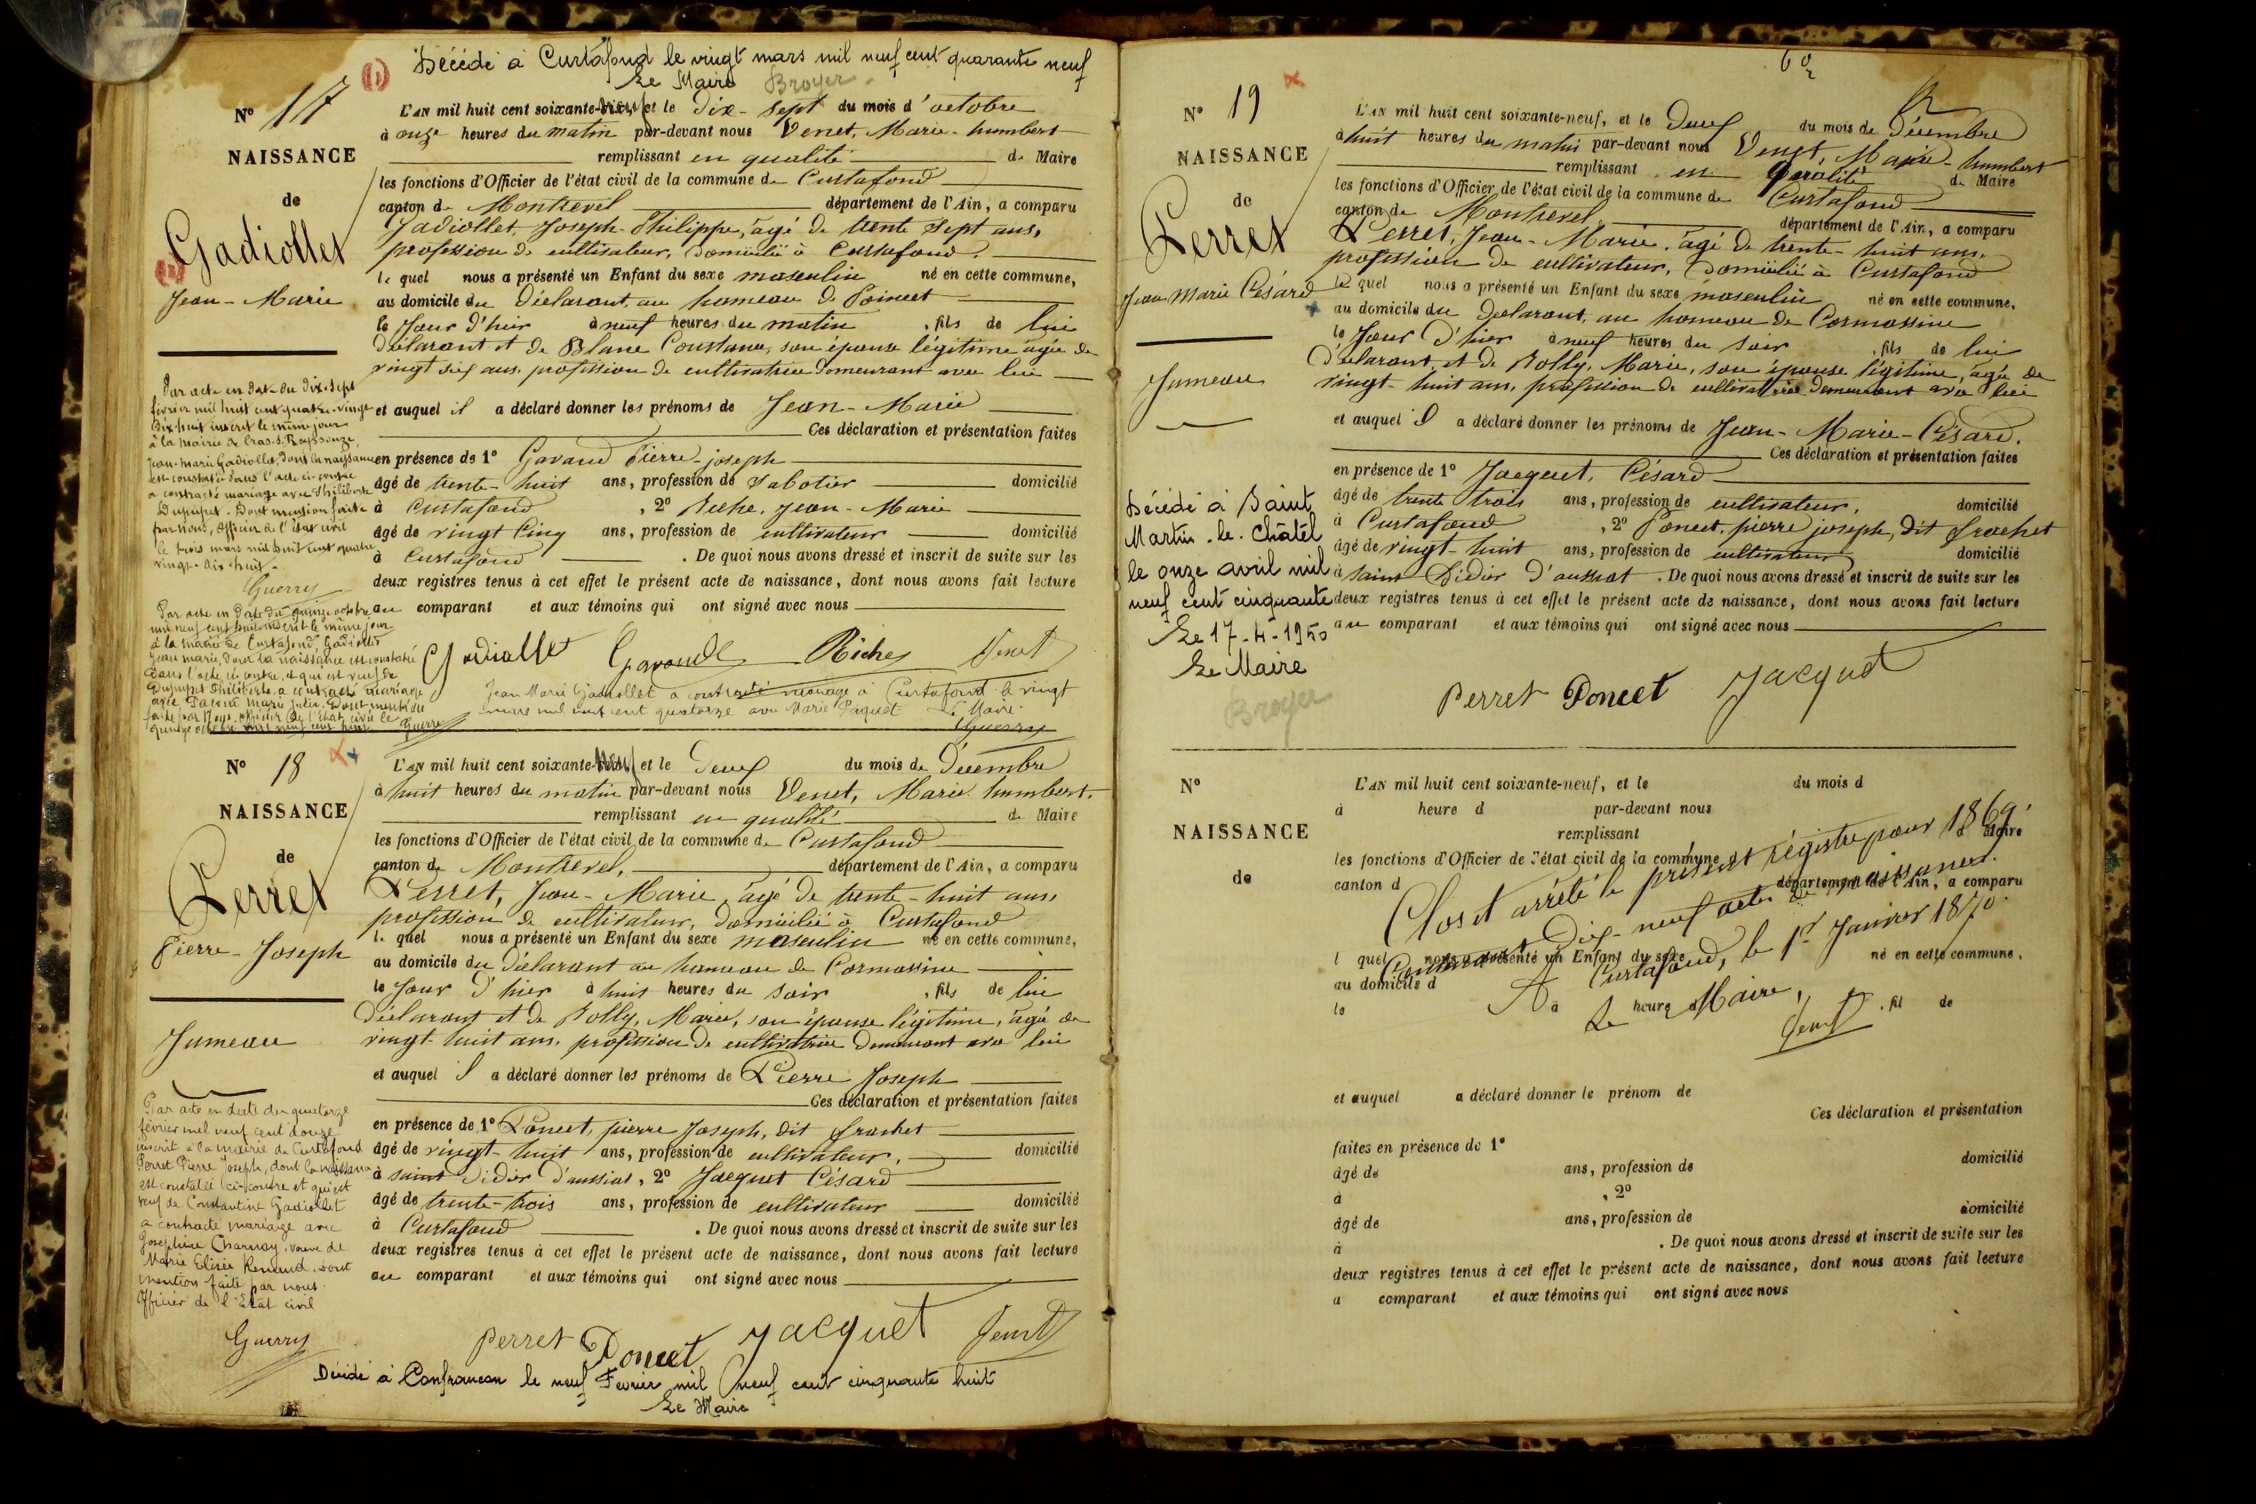 Décédé à Curtafond le vingt mars mil neuf cent quarante neuf
Le Maire Broyer
N° 17
NAISSANCE
de
Gadiollet
Jean-Marie
L'AN mil huit cent soixante-neuf et le dix-sept du mois d'octobre
à onze heures du matin par-devant nous Venet, Marie-humbert
remplissant en qualité de Maire
les fonctions d'Officier de l'état civil de la commune de Curtafond
canton de Montrevel département de l'Ain, a comparu
Gadiollet, Joseph-Philippe, âgé de trente sept ans,
profession de cultivateur, domicilié à Curtafond.
le quel nous a présenté un Enfant du sexe masculin né en cette commune,
au domicile du déclarant, au hameau de Poincet
le Jour d'hier à neuf heures du matin, fils de lui
déclarant et de Blanc Constance, son épouse légitime âgée de
vingt six ans, profession de cultivatrice demeurant avec lui
et auquel il a déclaré donner les prénoms de Jean-Marie
Ces déclaration et présentation faites
en présence de 1° Gavand Pierre-joseph
âgé de trente-huit ans, profession de sabotier domicilié
à Curtafond, 2° Riche, Jean-Marie
âgé de vingt cinq ans, profession de cultivateur domicilié
à Curtafond. De quoi nous avons dressé et inscrit de suite sur les
deux registres tenus à cet effet le présent acte de naissance, dont nous avons fait lecture
au comparant et aux témoins qui ont signé avec nous
Gadiollet Gavand Riche Venet
Jean Marie Gadiollet a contracté mariage à Curtafond le vingt
mars mil neuf cent quatorze avec Marie Paquet Le Maire
Guerry
Par acte en date du dix-sept
février mil huit cent quatre-vingt
dix-huit inscrit le même jour
à la mairie de Cras-s-Reyssouze,
Jean-marie Gadiollet, dont la naissance
est constatée dans l'acte ci-contre
a contracté mariage avec Philiberte
Dupuget. Dont mention faite
par nous, officier de l'état civil
le trois mars mil huit cent quatre
vingt-dix huit.
Guerry
Par acte en date du quinze octobre
mil neuf cent huit inscrit le même jour
à la mairie de Curtafond, Gadiollet
Jean marie, dont la naissance est constatée
dans l'acte ci-contre, et qui est veuf de
Dupuget Philiberte, a contracté mariage
avec marie Julie. Dont mention
faite par nous, officier de l'état civil le
quinze octobre mil neuf cent huit Guerry
N° 18
NAISSANCE
de
Perret
Pierre-Joseph
Jumeau
L'AN mil huit cent soixante-neuf et le deux du mois de Décembre
à huit heures du matin par-devant nous Venet, Marie-humbert,
remplissant en qualité de Maire
les fonctions d'Officier de l'état civil de la commune de Curtafond
canton de Montrevel, département de l'Ain, a comparu
Perret, Jean-Marie, âgé de trente-huit ans,
profession de cultivateur, domicilié à Curtafond
le quel nous a présenté un Enfant du sexe masculin né en cette commune,
au domicile du déclarant au hameau de Cormassine
le Jour d'hier à huit heures du soir, fils de lui
déclarant et de Jolly, Marie, son épouse légitime, âgée de
vingt-huit ans, profession de cultivatrice demeurant avec lui
et auquel il a déclaré donner les prénoms de Pierre Joseph
Ces déclaration et présentation faites
en présence de 1° Poncet, pierre Joseph, dit frachet
âgé de vingt-huit ans, profession de cultivateur, domicilié
à saint Didier d'aussiat, 2° Jacquet Césard
âgé de trente-trois ans, profession de cultivateur domicilié
à Curtafond. De quoi nous avons dressé et inscrit de suite sur les
deux registres tenus à cet effet le présent acte de naissance, dont nous avons fait lecture
au comparant et aux témoins qui ont signé avec nous
Perret Poncet Jacquet Venet
Par acte en date du quatorze
février mil neuf cent douze
inscrit à la mairie de Curtafond
Perret Pierre Joseph, dont la naissance
est constatée ci-contre et qui est
veuf de Constantine Gadiollet
a contracté mariage avec
Joséphine Charnay, veuve de
Marie Elisée Renaud. dont
mention faite par nous
Officier de l'Etat civil
Guerry
Décédé à Confrancon le neuf Fevrier mil neuf cent cinquante huit
Le Maire
N° 19
NAISSANCE
de
Perret
Jean Marie Césard
Jumeau
L'AN mil huit cent soixante-neuf, et le deux du mois de Décembre
à huit heures du matin par-devant nous Venet, Marie-humbert
remplissant en qualité de Maire
les fonctions d'Officier de l'état civil de la commune de Curtafond
canton de Montrevel département de l'Ain, a comparu
Perret, Jean-Marie, âgé de trente-huit ans,
profession de cultivateur, domicilié à Curtafond
le quel nous a présenté un Enfant du sexe masculin né en cette commune,
au domicile du déclarant, au hameau de Cormassine
le Jour d'hier à neuf heures du soir, fils de lui
déclarant, et de Jolly, Marie, son épouse légitime, âgée de
vingt-huit ans, profession de cultivatrice demeurant avec lui
et auquel il a déclaré donner les prénoms de Jean-Marie-Césard.
Ces déclaration et présentation faites
en présence de 1° Jacquet, Césard
âgé de trente trois ans, profession de cultivateur, domicilié
à Curtafond, 2° Poncet, pierre joseph, dit frachet
âgé de vingt-huit ans, profession de cultivateur domicilié
à saint Didier d'aussiat. De quoi nous avons dressé et inscrit de suite sur les
deux registres tenus à cet effet le présent acte de naissance, dont nous avons fait lecture
au comparant et aux témoins qui ont signé avec nous
Perret Poncet Jacquet
Décédé à Saint
Martin-le-Châtel
le onze avril mil
neuf cent cinquante
Le 17-4-1950
Le Maire
Broyer
N°
NAISSANCE
de
L'AN mil huit cent soixante-neuf, et le du mois d
à heure d par-devant nous
remplissant d Maire
les fonctions d'Officier de l'état civil de la commune
canton d département de l'Ain, a comparu
l quel nous a présenté un Enfant du sexe né en cette commune,
au domicile d
le à heure d , fil de
Clos et arrêté le présent régistre pour 1869,
Contenant Dix-neuf actes de naissances.
A Curtafond, le 1er Janvier 1870.
Le Maire,
Venet
et auquel a déclaré donner le prénom de
Ces déclaration et présentation
faites en présence de 1°
âgé de ans, profession de domicilié
à , 2°
âgé de ans, profession de domicilié
à . De quoi nous avons dressé et inscrit de suite sur les
deux registres tenus à cet effet le présent acte de naissance, dont nous avons fait lecture
a comparant et aux témoins qui ont signé avec nous